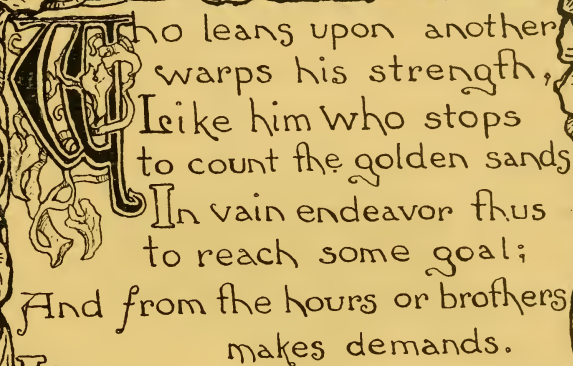 Who leans upon another
warps his strength,
Like him who stops
to count the golden sands
In vain endeavor thus
to reach some goal;
And from the hours or brothers
makes demands.